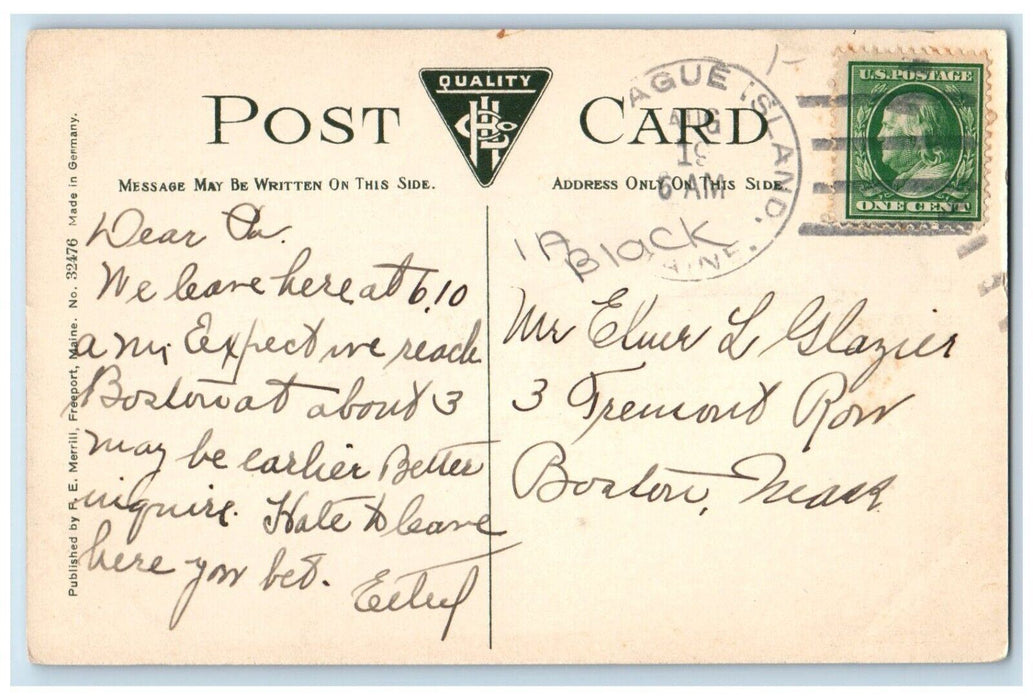 POST CARD
QUALITY
MESSAGE MAY BE WRITTEN ON THIS SIDE.
ADDRESS ONLY ON THIS SIDE
AGUE ISLAND.
AUG
19
6 AM
U.S. POSTAGE
ONE CENT
Black
Dear Pa.
We leave here at 6.10
a m, Expect we reach
Boston at about 3
may be earlier Better
inquire. Hate to leave
here you bet.
Ethel
Mr Elmer L Glazier
3 Tremont Row
Boston, Mass
Published by F. E. Merrill, Freeport, Maine. No. 32476 Made in Germany.